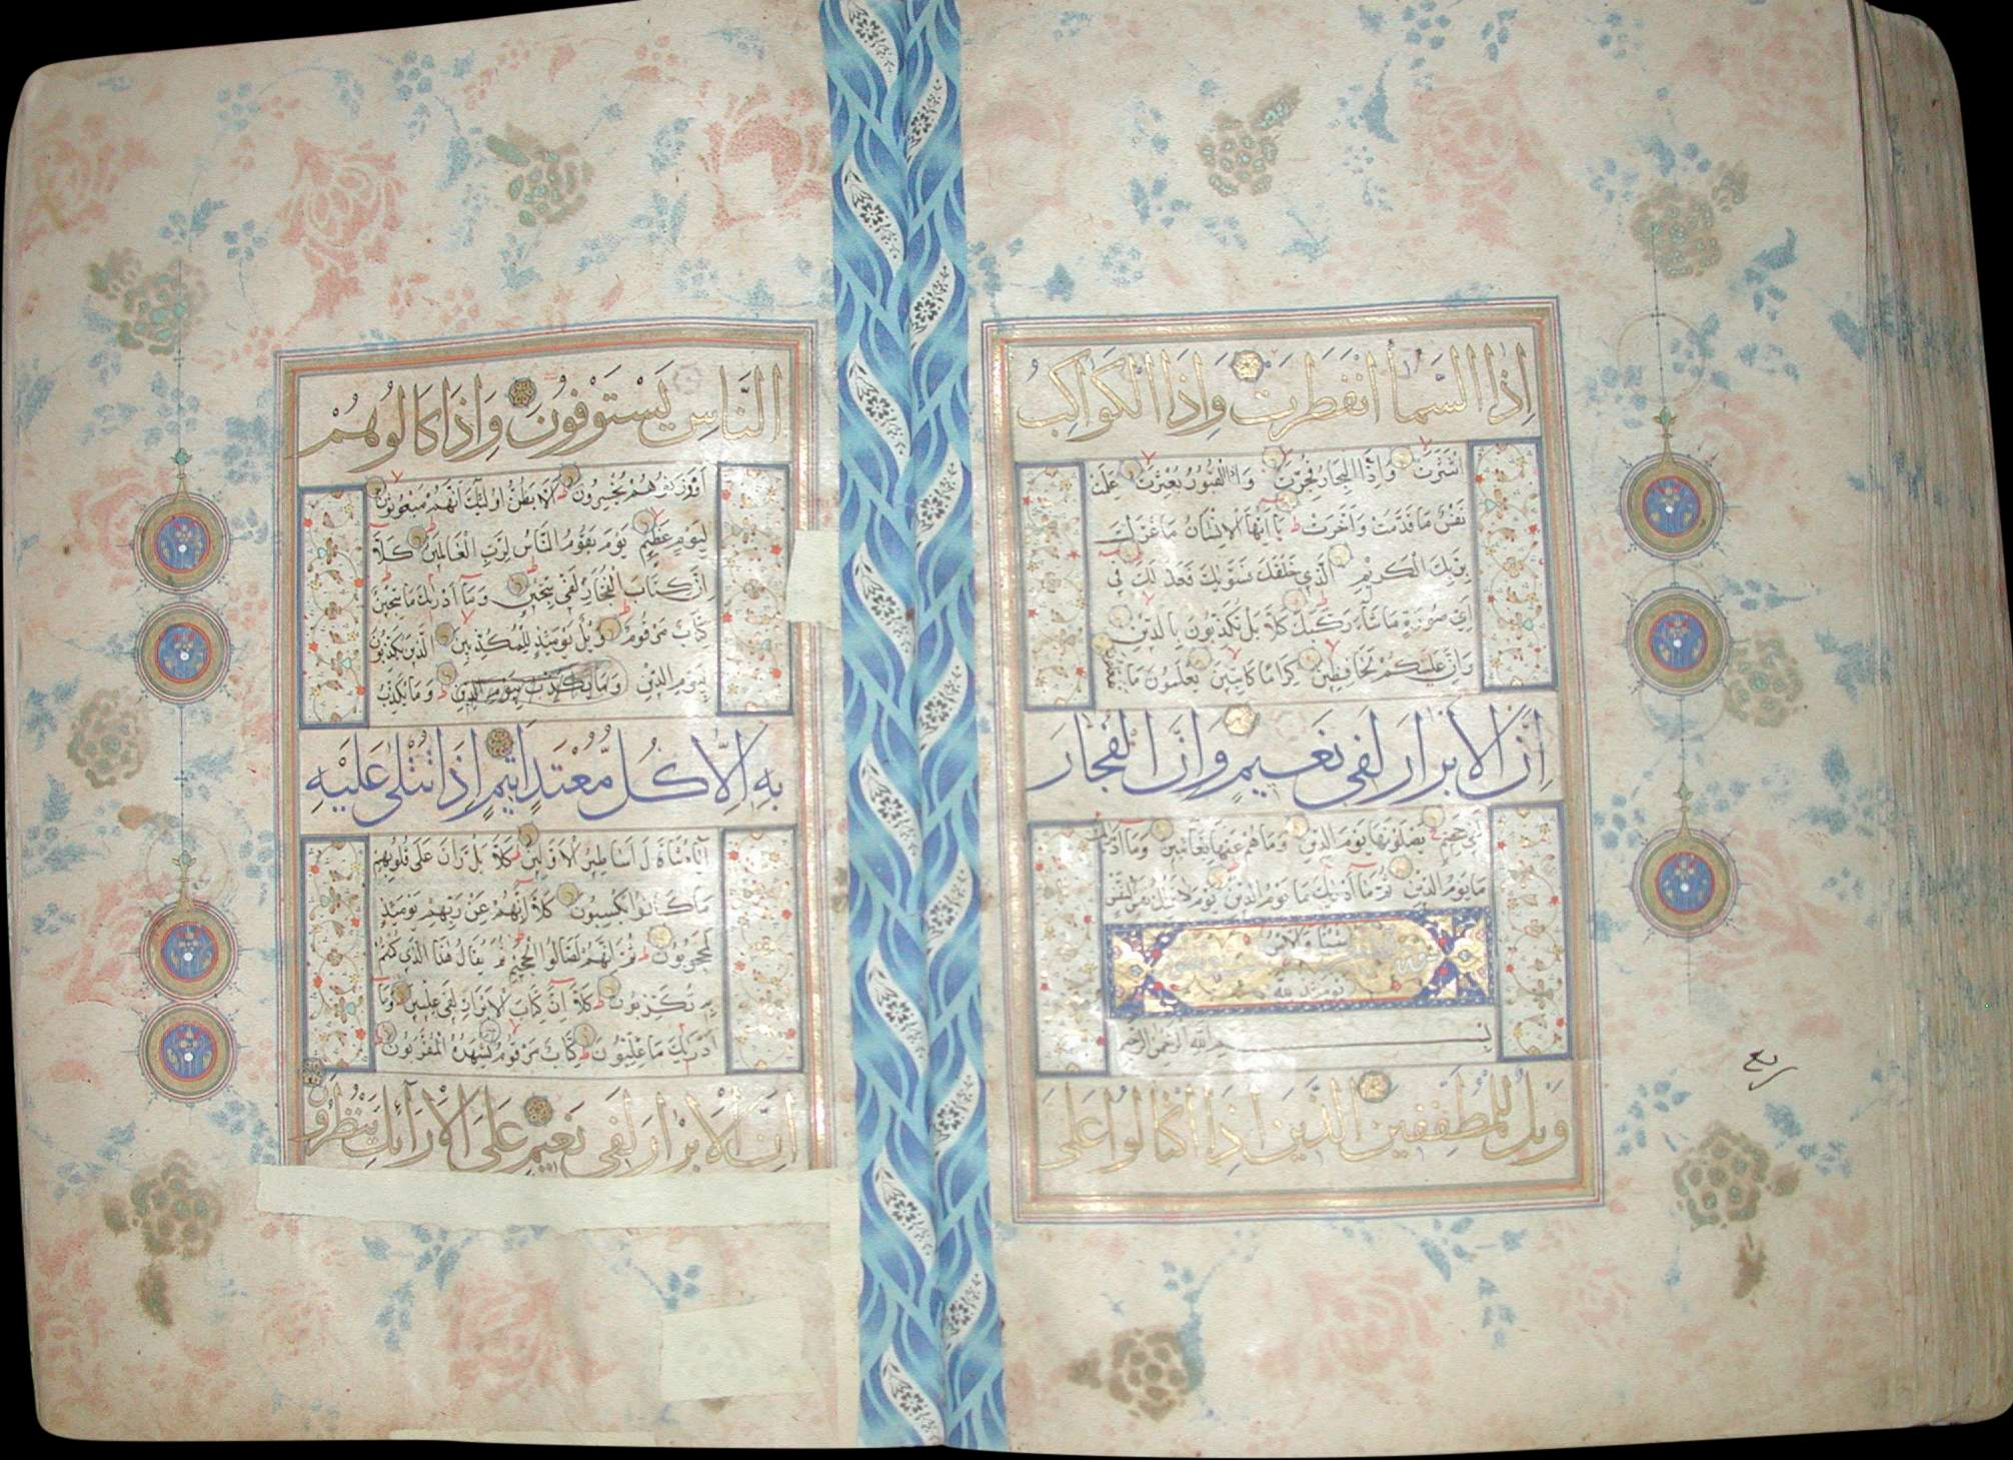 اِذَا السَّمَاۤءُ انْفَطَرَتْ وَاِذَا الْكَوَاكِبُ
انْتَثَرَتْ وَاِذَا الْبِحَارُ فُجِّرَتْ وَاِذَا الْقُبُورُ بُعْثِرَتْ عَلِمَتْ
نَفْسٌ مَا قَدَّمَتْ وَاَخَّرَتْ يَا اَيُّهَا الْاِنْسَانُ مَا غَرَّكَ
بِرَبِّكَ الْكَرِيْمِ الَّذِي خَلَقَكَ فَسَوّٰيكَ فَعَدَلَكَ فِي
اَيِّ صُورَةٍ مَا شَاۤءَ رَكَّبَكَ كَلَّا بَلْ تُكَذِّبُونَ بِالدِّيْنِ
وَاِنَّ عَلَيْكُمْ لَحَافِظِيْنَ كِرَامًا كَاتِبِيْنَ يَعْلَمُونَ مَا تَفْعَلُونَ
اِنَّ الْاَبْرَارَ لَفِي نَعِيمٍ وَاِنَّ الْفُجَّارَ
لَفِي جَحِيْمٍ يَصْلَوْنَهَا يَوْمَ الدِّيْنِ وَمَا هُمْ عَنْهَا بِغَاۤئِبِيْنَ وَمَا اَدْرٰيكَ
مَا يَوْمُ الدِّيْنِ ثُمَّ مَا اَدْرٰيكَ مَا يَوْمُ الدِّيْنِ يَوْمَ لَا تَمْلِكُ نَفْسٌ لِنَفْسٍ
شَيْئًا وَالْاَمْرُ
يَوْمَئِذٍ لِلّٰهِ
بِسْمِ اللّٰهِ الرَّحْمٰنِ الرَّحِيْمِ
وَيْلٌ لِلْمُطَفِّفِينَ الَّذِينَ اِذَا اكْتَالُوا عَلَى
ربع
النَّاسِ يَسْتَوْفُونَ وَاِذَا كَالُوهُمْ
اَوْ وَزَنُوهُمْ يُخْسِرُونَ اَلَا يَظُنُّ اُولٰۤئِكَ اَنَّهُمْ مَبْعُوثُونَ
لِيَوْمٍ عَظِيْمٍ يَوْمَ يَقُوْمُ النَّاسُ لِرَبِّ الْعَالَمِيْنَ كَلَّا
اِنَّ كِتَابَ الْفُجَّارِ لَفِي سِجِّيْنٍ وَمَا اَدْرٰيكَ مَا سِجِّيْنٌ
كِتَابٌ مَرْقُومٌ وَيْلٌ يَوْمَئِذٍ لِلْمُكَذِّبِيْنَ الَّذِيْنَ يُكَذِّبُونَ
بِيَوْمِ الدِّيْنِ وَمَا يُكَذِّبُ بِيَوْمِ الدِّيْنِ وَمَا يُكَذِّبُ
بِهِ اِلَّا كُلُّ مُعْتَدٍ اَثِيْمٍ اِذَا تُتْلٰى عَلَيْهِ
اٰيَاتُنَا قَالَ اَسَاطِيْرُ الْاَوَّلِيْنَ كَلَّا بَلْ رَانَ عَلٰى قُلُوبِهِمْ
مَا كَانُوا يَكْسِبُونَ كَلَّا اِنَّهُمْ عَنْ رَبِّهِمْ يَوْمَئِذٍ
لَمَحْجُوبُونَ ثُمَّ اِنَّهُمْ لَصَالُوا الْجَحِيْمِ ثُمَّ يُقَالُ هٰذَا الَّذِي كُنْتُمْ
بِهِ تُكَذِّبُونَ كَلَّا اِنَّ كِتَابَ الْاَبْرَارِ لَفِي عِلِّيِّيْنَ وَمَا
اَدْرٰيكَ مَا عِلِّيُّونَ كِتَابٌ مَرْقُومٌ يَشْهَدُهُ الْمُقَرَّبُونَ
اِنَّ الْاَبْرَارَ لَفِي نَعِيمٍ عَلَى الْاَرَاۤئِكِ يَنْظُرُونَ